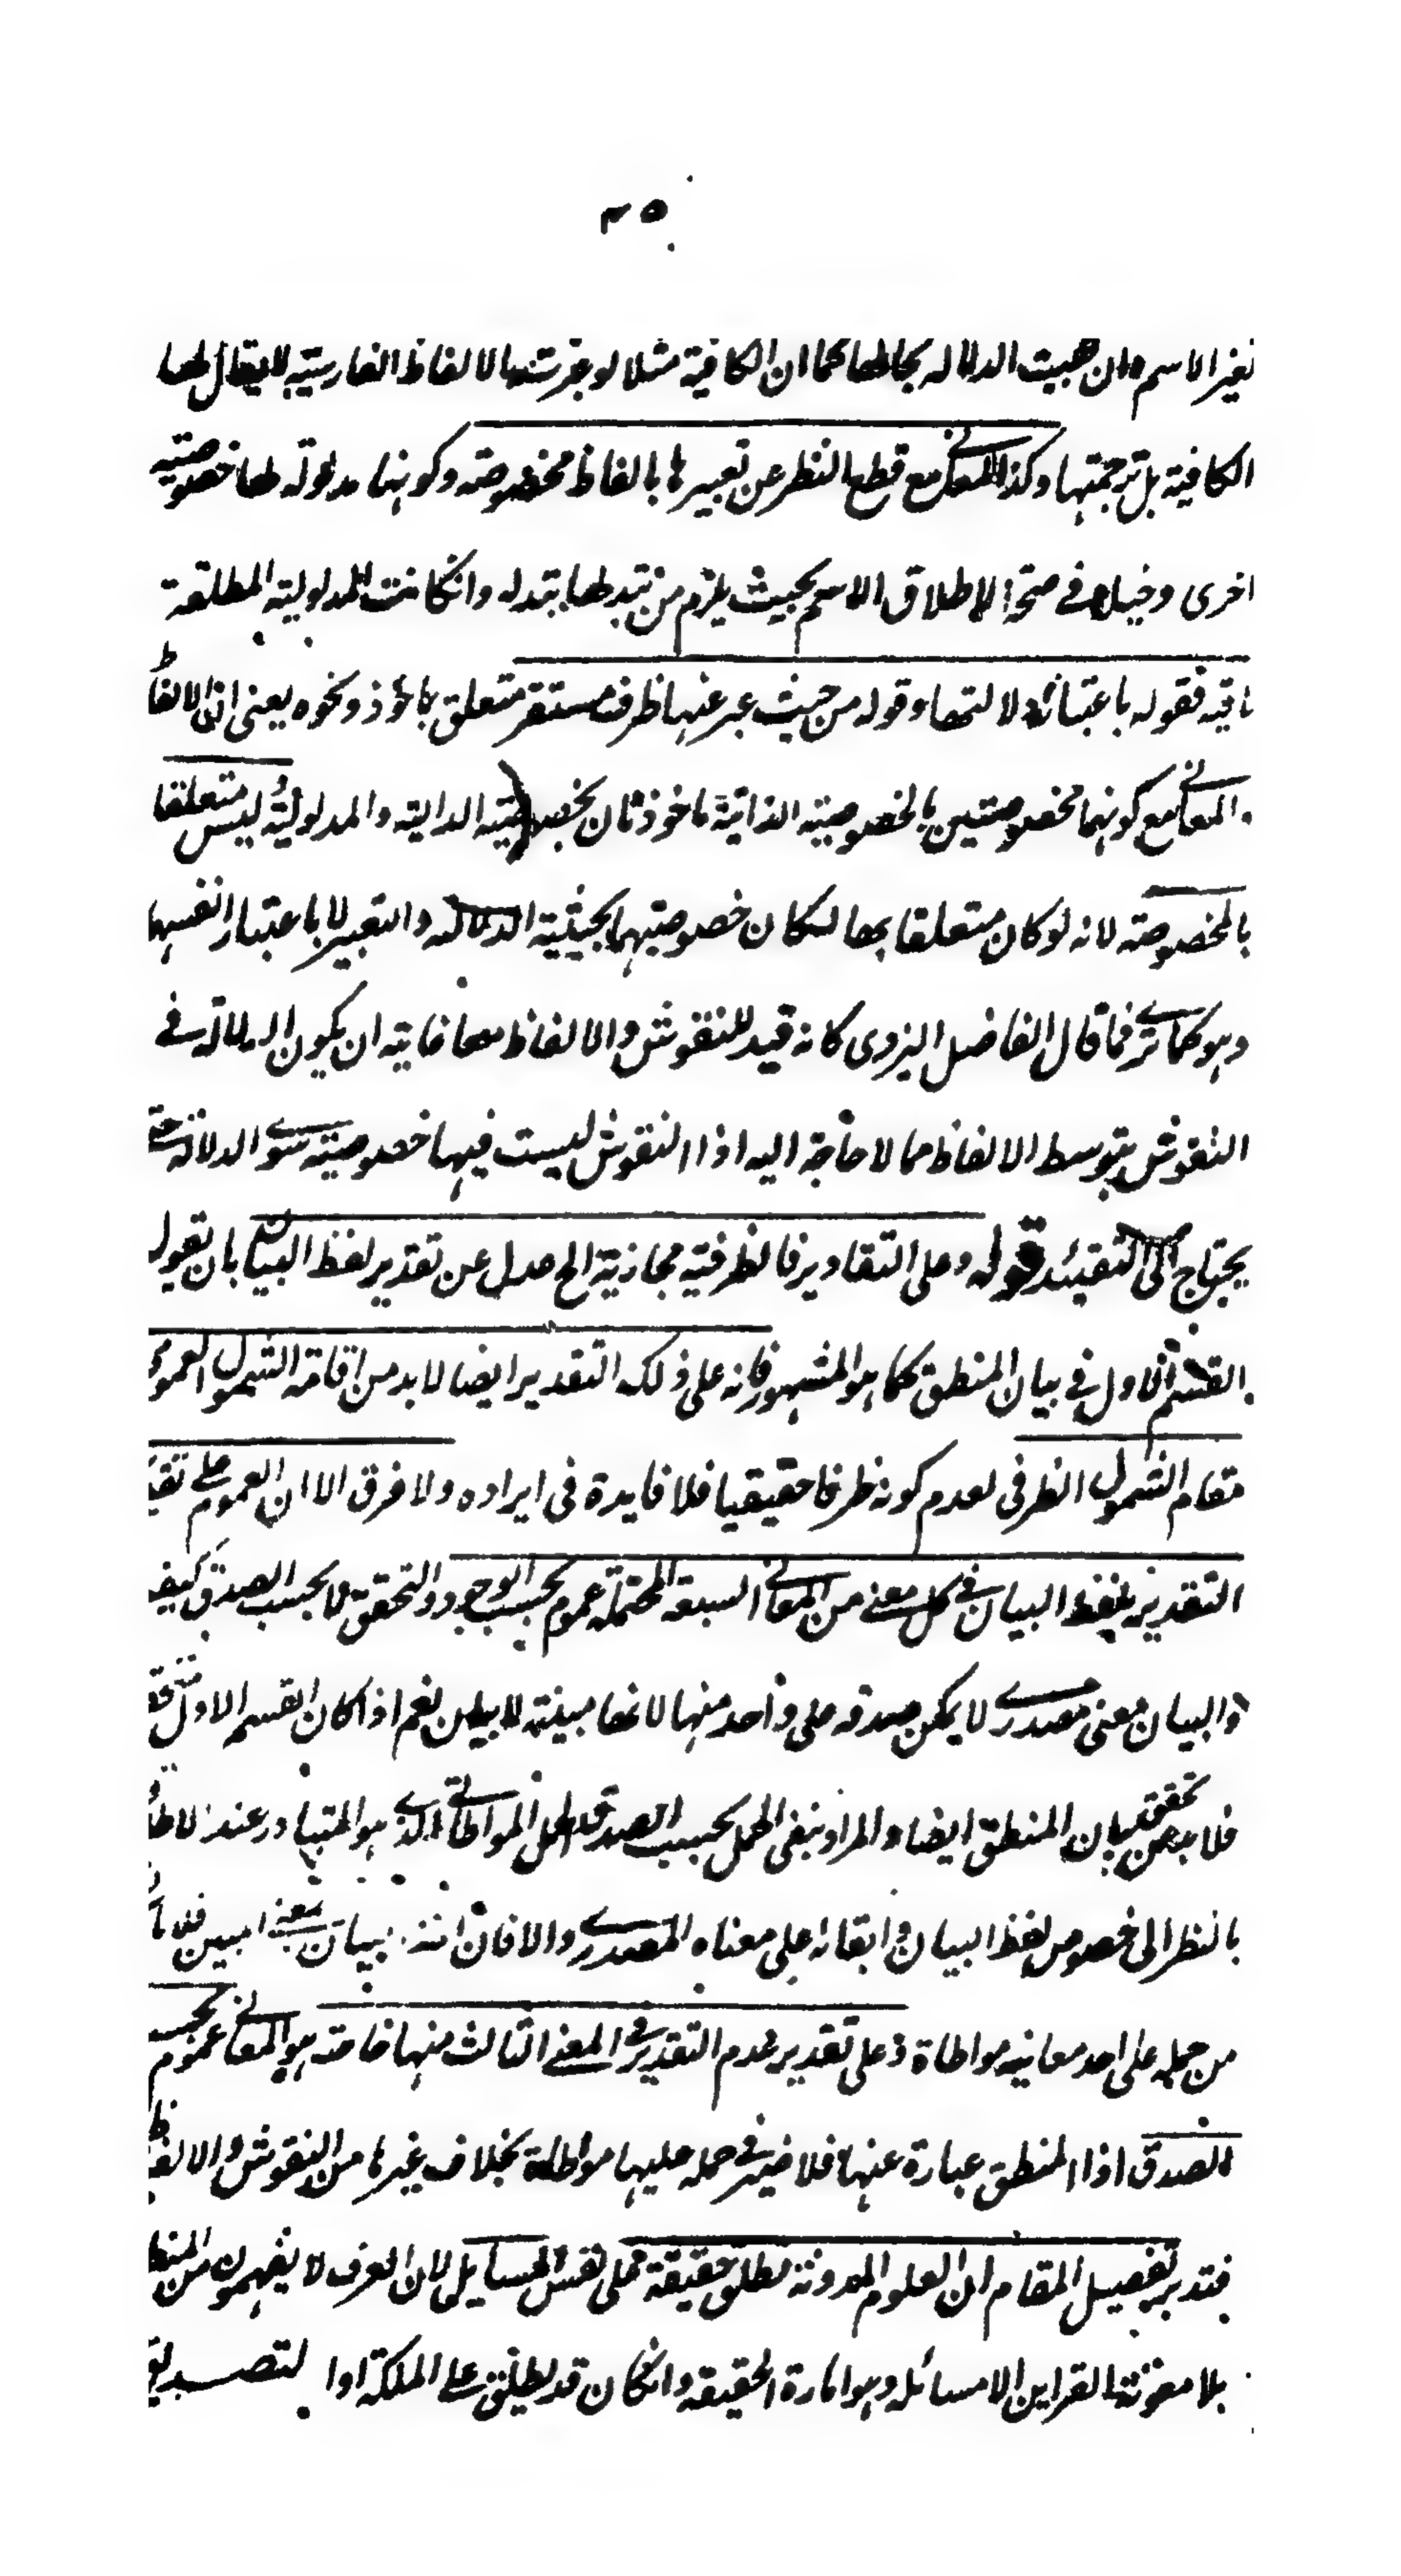 ٣٥
تغير الاسم وان بقيت الدلالة بحالها كما ان الكافية مثلا لو غيرتها لالفاظ الفارسية لا يقال لها
الكافية بل ترجمتها وكذا للمعاني مع قطع النظر عن تعبيرها بالفاظ مخصوصة وكونها مدلولة لها خصوصية
اخرى دخيلة في صحة اطلاق الاسم بحيث يلزم من تبدلها تبدله وانكانت المدلولية المطلقة
باقية فقوله باعتبار دلالتها وقوله من حيث عبر عنها ظرف مستقر متعلق بماخوذ ونحوه يعني ان الالفاظ
والمعاني مع كونهما مخصوصتين بالخصوصية الذاتية ماخوذتان بخصوصية الدالية والمدلولية ليس متعلقا
بالمخصوصة لانه لو كان متعلقا بها لكان خصوصيتهما بحيثية الدلالة والتعبير لا باعتبار انفسها
وهو كما ترى فما قال الفاضل اليزدى كانه قيد للنقوش والالفاظ معا غايته ان يكون الدلالة في
النقوش بتوسط الالفاظ مما لا حاجة اليه اذ النقوش ليست فيها خصوصية سوى الدلالة حتى
يحتاج الى التقييد قوله وعلى التقادير فالظرفية مجازية الحاصل عن تقدير لفظ البيان بان تقول
القسم الاول في بيان المنطق كما هو المشهور فانه على ذلك التقدير ايضا لابد من اقامة الشمول العمومي
مقام الشمول الظرفى لعدم كونه ظرفا حقيقيا فلا فايدة فى ايراده ولا فرق الا ان العموم على تقدير
التقدير بلفظ البيان في كل معنى من المعاني السبعة المحتملة عموم بحسب الوجود والتحقق لا بحسب الصدق كيف
والبيان معنى مصدري لا يمكن صدقه على واحد منها لانها مبينة لا بيان نعم اذا كان القسم الاول متحققا
فلابد من تحقق بيان المنطق ايضا والمراد بنفى الحمل بحسب الصدق الحمل المواطاتي الذي هو المتبادر عند الاطلاق
بالنظر الى خصوص لفظ البيان و ابقائه على معناه المصدري والا فان بيان بمعنى المبين فلا
من حمله على احد معانيه مواطاة وعلى تقدير عدم التقدير في المعنى الثالث منها خاصة هو المعاني عموم بحسب
الصدق اذ المنطق عبارة عنها فلا ضير في حمله عليها مواطاة بخلاف غيرها من النقوش والالفاظ
فتدبر تفصيل المقام ان العلوم المدونة تطلق حقيقة على نفس المسايل لان العرف لا يفهمون من المنطق
بلا معونة القراين الا مسائله وهو امارة الحقيقة وانكان قد يطلق على الملكة او التصديق